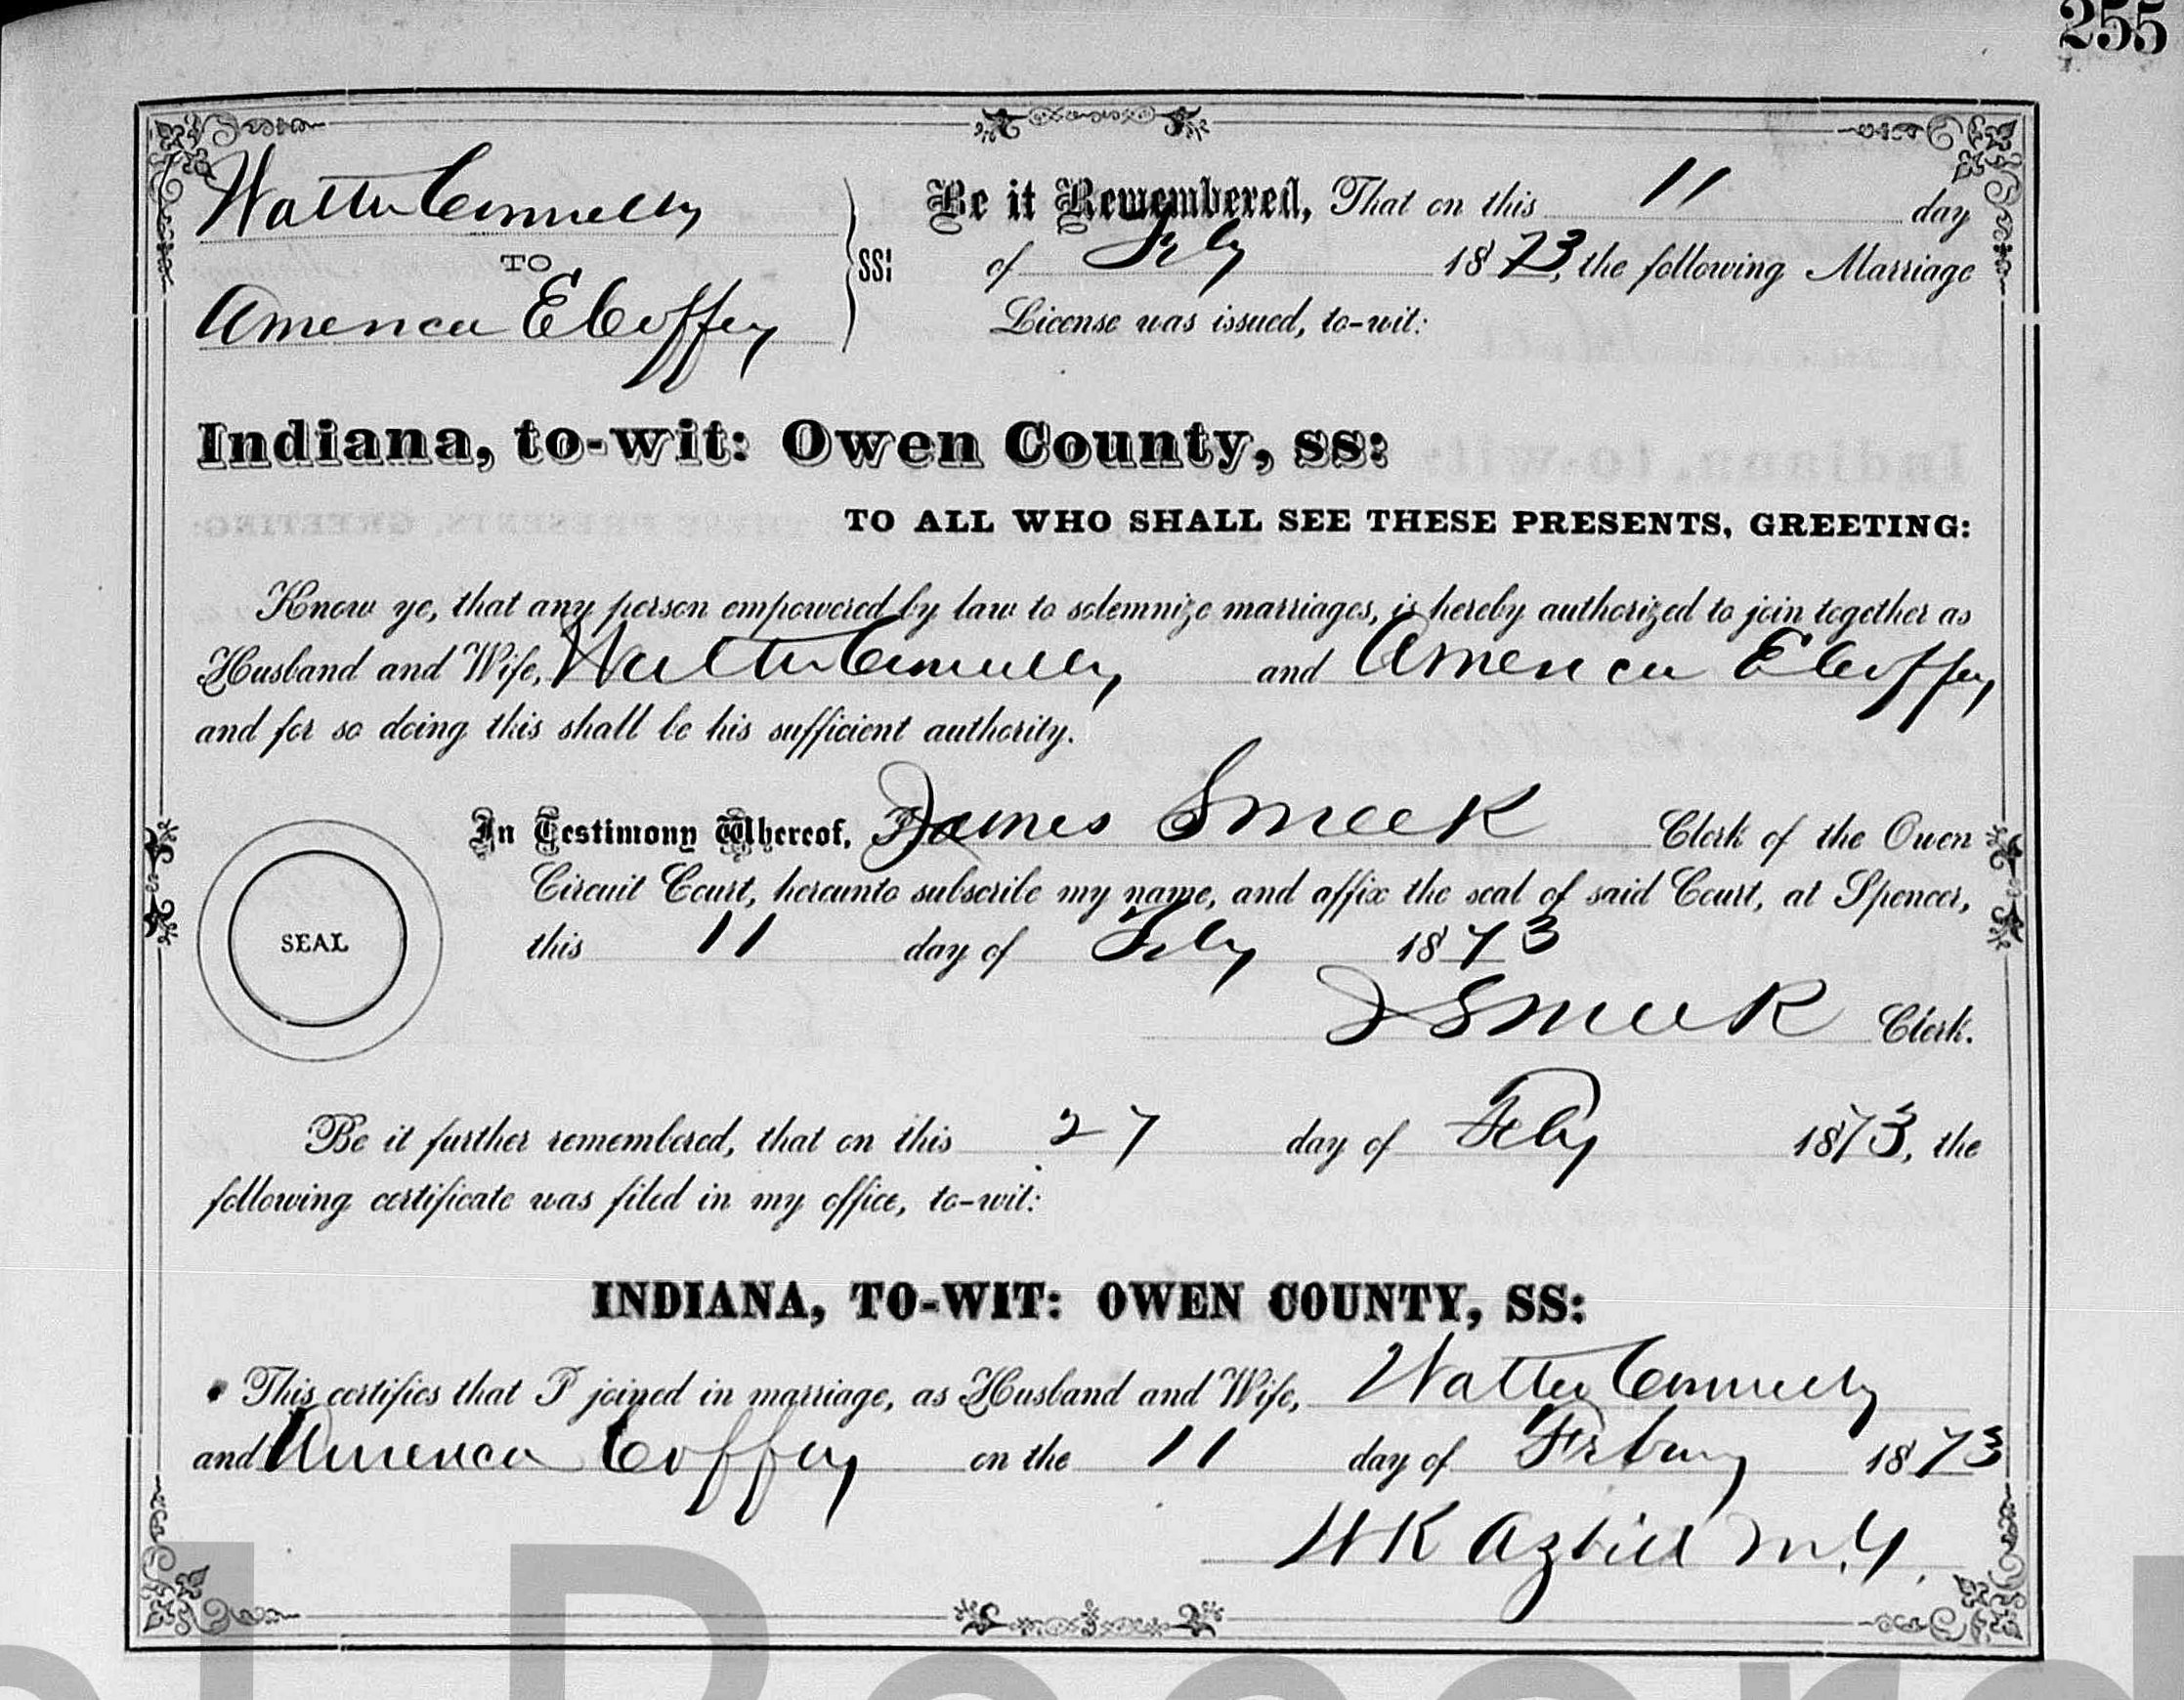 255
Walter Connelly
TO
America E Coffey
SS:
Be it Remembered, That on this 11 day
of Feby 1873, the following Marriage
License was issued, to-wit:
Indiana, to-wit: Owen County, ss:
TO ALL WHO SHALL SEE THESE PRESENTS, GREETING:
Know ye, that any person empowered by law to solemnize marriages, is hereby authorized to join together as
Husband and Wife, Walter Connelly and America E Coffey
and for so doing this shall be his sufficient authority.
In Testimony Whereof, I James S Meek Clerk of the Owen
Circuit Court, hereunto subscribe my name, and affix the seal of said Court, at Spencer,
SEAL
this 11 day of Feby 1873
J S Meek Clerk.
Be it further remembered, that on this 27 day of Feby 1873, the
following certificate was filed in my office, to-wit:
INDIANA, TO-WIT: OWEN COUNTY, SS:
This certifies that I joined in marriage, as Husband and Wife, Walter Connelly
and America Coffey on the 11 day of 1873
K Azbill M.G.